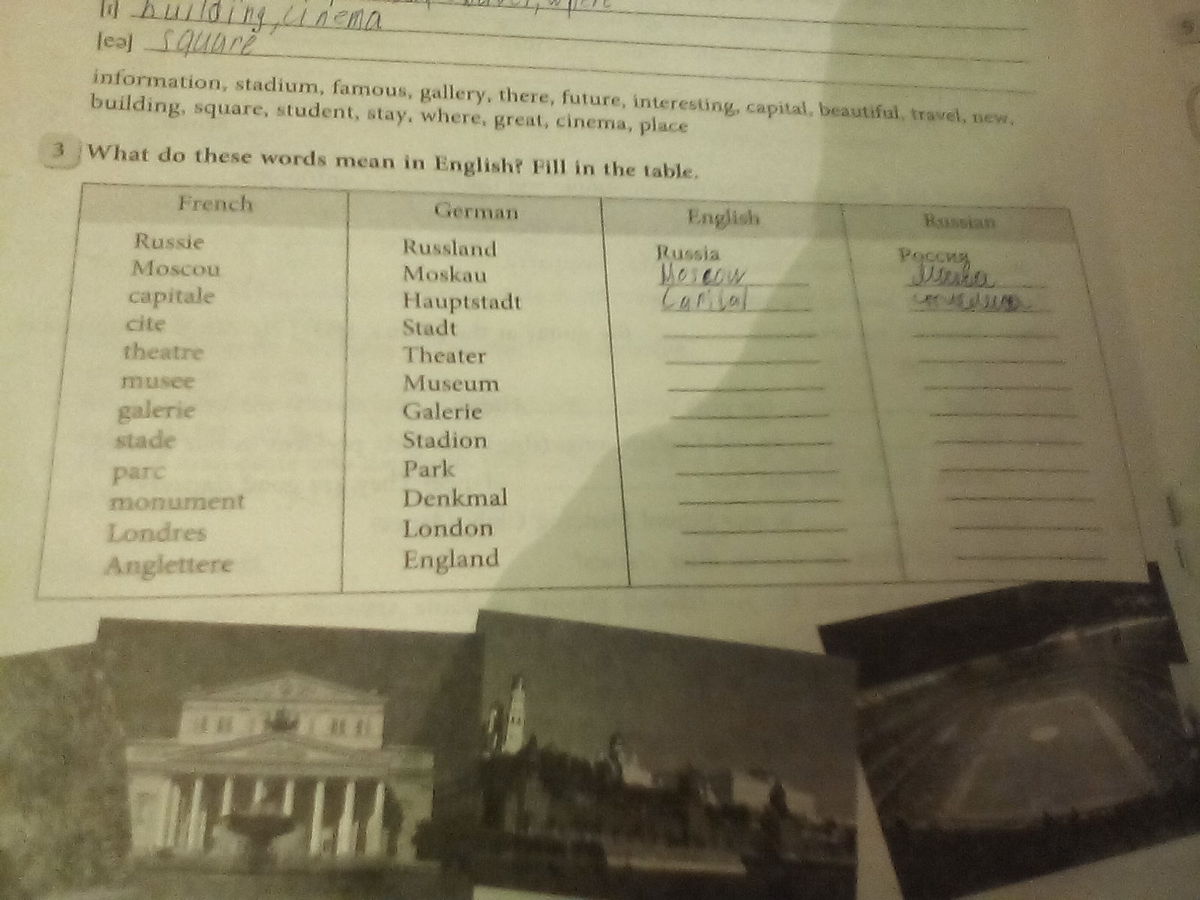 [i] building, cinema
[eə] square
information, stadium, famous, gallery, there, future, interesting, capital, beautiful, travel, new,
building, square, student, stay, where, great, cinema, place
3 What do these words mean in English? Fill in the table.
French German English Russian
Russie Russland Russia Россия
Moscou Moskau Moscow
capitale Hauptstadt Capital
cite Stadt
theatre Theater
musee Museum
galerie Galerie
stade Stadion
parc Park
monument Denkmal
Londres London
Anglettere England